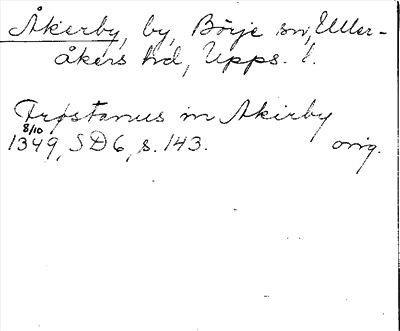 Åkerby, by, Börje sn, Uller-
åkers hd, Upps. l.
Frøstanus in Akirby
8/10
1349, SD6, s. 143. orig.